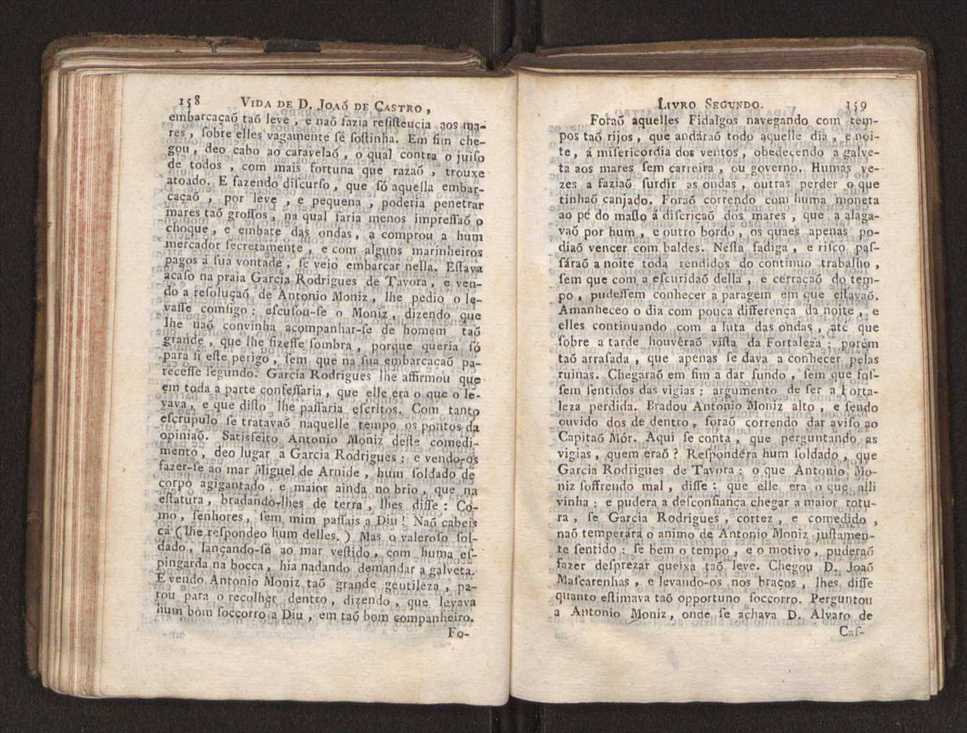 158 VIDA DE D. JOAÕ DE CASTRO ,
embarcaçaõ taõ leve , e naõ fazia reſiſtencia aos ma-
res , ſobre elles vagamente ſe ſoſtinha. Em fim che-
gou , deo cabo ao caravelaõ , o qual contra o juiſo
de todos , com mais fortuna que razaõ , trouxe
atoado. E fazendo diſcurſo , que ſó aquella embar-
caçaõ , por leve , e pequena , poderia penetrar
mares taõ groſſos , na qual faria menos impreſſaõ o
choque , e embate das ondas , a comprou a hum
mercador ſecretamente , e com alguns marinheiros
pagos á ſua vontade , ſe veio embarcar nella. Eſtava
acaſo na praia Garcia Rodrigues de Tavora , e ven-
do a reſoluçaõ de Antonio Moniz , lhe pedio o le-
vaſſe comſigo : eſcuſou-ſe o Moniz , dizendo que
lhe naõ convinha acompanhar-ſe de homem taõ
grande , que lhe fizeſſe ſombra , porque queria ſó
para ſi eſte perigo , ſem que na ſua embarcaçaõ pa-
receſſe ſegundo. Garcia Rodrigues lhe affirmou que
em toda a parte confeſſaria , que elle era o que o le-
vava , e que diſſo lhe paſſaria eſcritos. Com tanto
eſcrupulo ſe tratavaõ naquelle tempo os pontos da
opiniaõ. Satisfeito Antonio Moniz deſte comedi-
mento , deo lugar a Garcia Rodrigues ; e vendo-os
fazer-ſe ao mar Miguel de Arnide , hum ſoldado de
corpo agigantado , e maior ainda no brio , que na
eſtatura , bradando-lhes de terra , lhes diſſe : Co-
mo , ſenhores , ſem mim paſſais a Diu ! Naõ cabeis
cá ( lhe reſpondeo hum delles. ) Mas o valeroſo ſol-
dado , lançando-ſe ao mar veſtido , com huma eſ-
pingarda na bocca , hia nadando demandar a galveta.
E vendo Antonio Moniz taõ grande gentileza , pa-
rou para o recolher dentro , dizendo , que levava
hum bom ſoccorro a Diu , em taõ bom companheiro.
Fo-
LIVRO SEGUNDO. 159
Foraõ aquelles Fidalgos navegando com tem-
pos taõ rijos , que andáraõ todo aquelle dia , e noi-
te , á miſericordia dos ventos , obedecendo a galve-
ta aos mares ſem carreira , ou governo. Humas ve-
zes a faziaõ ſurdir as ondas , outras perder o que
tinhaõ canjado. Foraõ correndo com huma moneta
ao pé do maſto á diſcriçaõ dos mares , que a alaga-
vaõ por hum , e outro bordo , os quaes apenas po-
diaõ vencer com baldes. Neſta fadiga , e riſco paſ-
ſáraõ a noite toda rendidos do continuo trabalho ,
ſem que com a eſcuridaõ della , e cerraçaõ do tem-
po , pudeſſem conhecer a paragem em que eſtavaõ.
Amanheceo o dia com pouca differença da noite , e
elles continuando com a luta das ondas , até que
ſobre a tarde houvéraõ viſta da Fortaleza ; porém
taõ arraſada , que apenas ſe dava a conhecer pelas
ruinas. Chegaraõ em fim a dar fundo , ſem que foſ-
ſem ſentidos das vigias ; argumento de ſer a Forta-
leza perdida. Bradou Antonio Moniz alto , e ſendo
ouvido dos de dentro , foraõ correndo dar aviſo ao
Capitaõ Mór. Aqui ſe conta , que perguntando as
vigias , quem eraõ ? Reſpondéra hum ſoldado , que
Garcia Rodrigues de Tavora : o que Antonio Mo-
niz ſoffrendo mal , diſſe : que elle era o que alli
vinha ; e pudera a deſconfiança chegar a maior rotu-
ra , ſe Garcia Rodrigues , cortez , e comedido ,
naõ temperára o animo de Antonio Moniz juſtamen-
te ſentido ; ſe bem o tempo , e o motivo , puderaõ
fazer deſprezar queixa taõ leve. Chegou D. Joaõ
Maſcarenhas , e levando-os nos braços , lhes diſſe
quanto eſtimava taõ opportuno ſoccorro. Perguntou
a Antonio Moniz , onde ſe achava D. Alvaro de
Caſ-